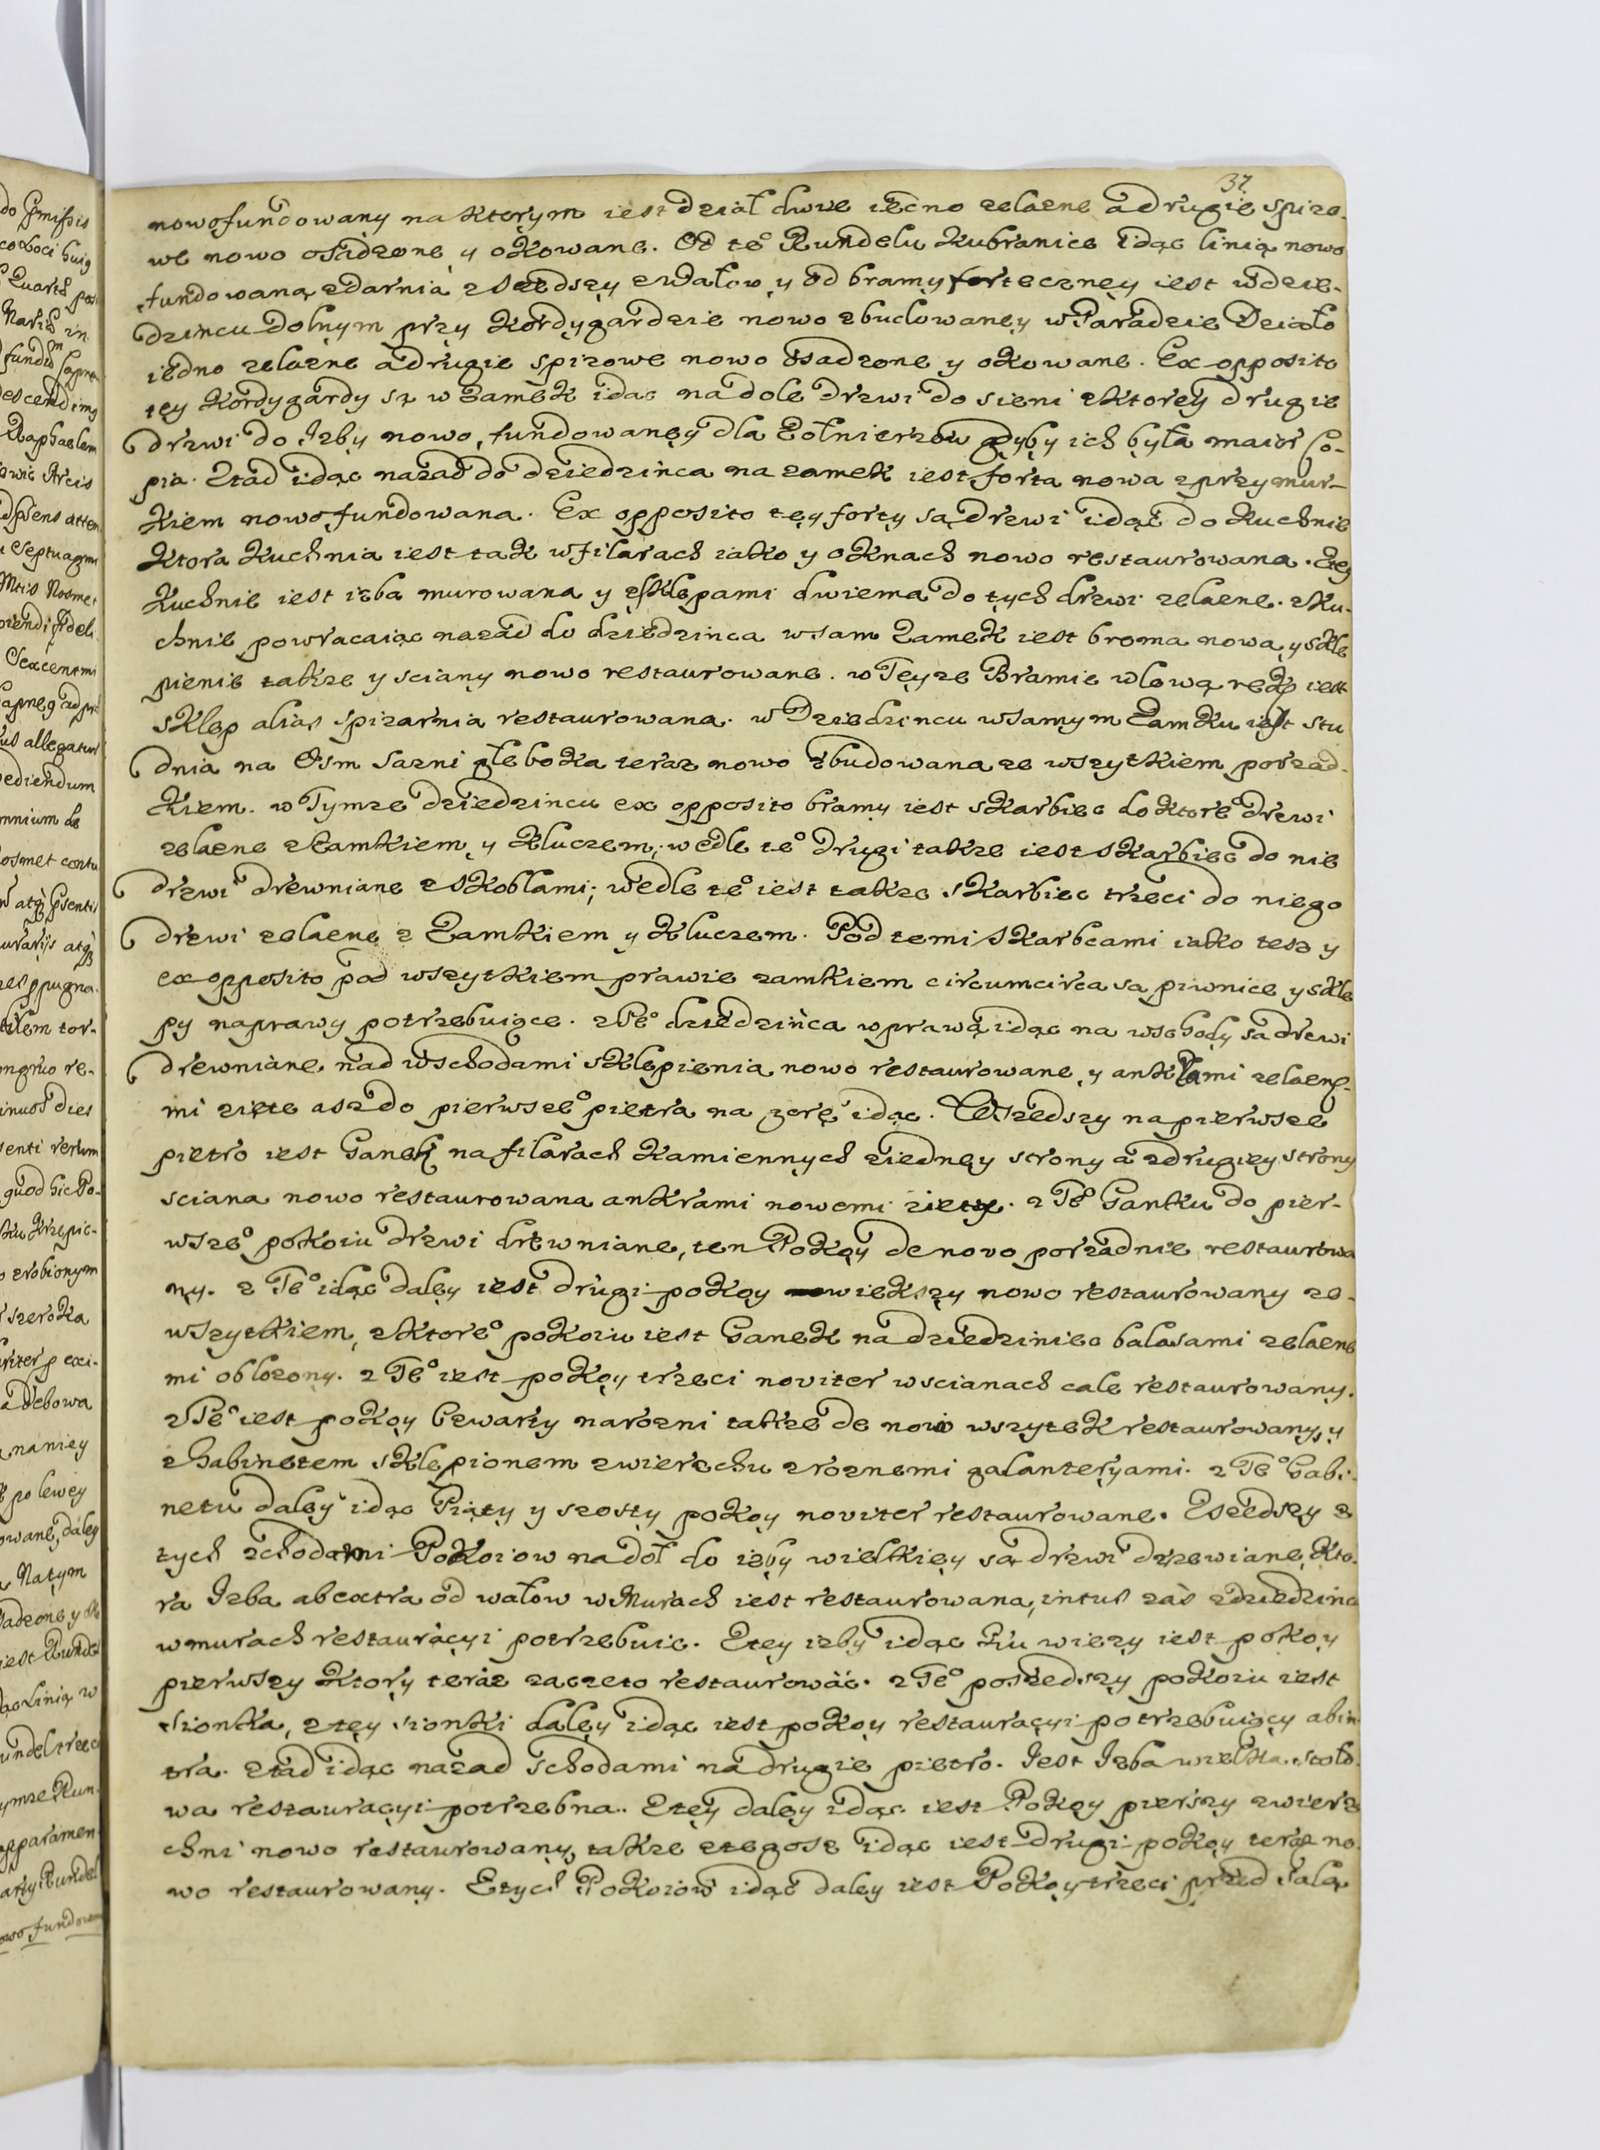 37
nowofundowany na ktorym iest dział dwie iedno zelazne a drugie spizo-
we nowo osadzone y okowane. Od te° Rundelu ku bramice idąc linią nowo
fundowaną zdarnią zszedszy zwałow y od bramy forteczney iest w dzie-
dzincu dolnym przy kordygardzie nowo zbudowaney w Paradzie Działo
iedno zelazne a drugie spizowe nowo osadzone y okowane. Ex opposito
tey kordygardy są w zamek idąc na dole drzwi do sieni z ktorey drugie
drzwi do Izby nowo fundowaney dla Zołnierzow gdyby ich była maior Co-
pia. Ztad idąc nazad do dziedzinca na zamek iest forta nowa z przymur-
kiem nowo fundowana. Ex opposito tey forty są drzwi idąc do kuchnie
ktora kuchnia iest tak w filarach iako y oknach nowo restaurowana. Z tey
kuchnie iest izba murowana y z sklepami dwiema do tych drzwi zelazne. z ku-
chnie powracaiąc nazad do dziedzinca w sam Zamek iest broma nowa y skle
pienie takze y sciany nowo restaurowane. w Teyze Bramie w lewą rękę iest
sklep alias spizarnia restaurowana. w Dziedzincu w samym Zamku iest stu
dnia na Osm sazni głeboka teraz nowo zbudowana ze wszytkiem porzad-
kiem. w Tymze dziedzincu ex opposito bramy iest skarbiec do ktore° drzwi
zelazne z Zamkiem y kluczem, wedle te° drugi takze iest skarbiec do nie
drzwi drewniane z skoblami; wedle te° iest takze skarbiec trzeci do niego
drzwi zelazne z Zamkiem y kluczem. Pod temi skarbcami iako tesz y
ex opposito pod wszytkiem prawie zamkiem circumcirca sa piwnice y skle
py naprawy potrzebuiące. z Te° dziedzińca w prawą idąc na wschody są drzwi
drewniane, nad wschodami sklepienia nowo restaurowane y ankrami zelazne-
mi zięte asz do pierwsze° pietra na gorę idąc. Wszedszy na pierwsze
pietro iest Ganek na filarach kamiennych z iedney strony a z drugiey strony
sciana nowo restaurowana ankrami nowemi zięte. z Te° Ganku do pier-
wsze° pokoiu drzwi drewniane, ten Pokoy de novo porządnie restaurowa
ny. z Te° idąc daley iest drugi pokoy wiekszy nowo restaurowany ze-
wszytkiem, z ktore° pokoiu iest Ganek na dziedziniec balasami zelazne
mi obłozony. z Te° iest pokoy trzeci noviter w scianach cale restaurowany.
z Te° iest pokoy czwarty narozni takze de novo wszytek restaurowany, y
z Gabinetem sklepionem zwierzchu z roznemi galanteryami. z Te° Gabi-
netu daley idąc Piąty y szosty pokoy noviter restaurowane. Zszedszy z
tych schodami Pokoiow na doł do izby wielkiey są drzwi drzewiane, kto-
ra Izba abextra od wałow w Murach iest restaurowana, intus zas z dziedzinca
w murach restauracyi potrzebuie. Z tey izby idąc ku wiezy iest pokoy
pierwszy ktory teraz zaczeto restaurować. z Te° poszedszy pokoiu iest
sionka, z tey sionki daley idąc iest pokoy restauracyi potrzebuiący abin
tra. Ztad idąc nazad schodami na drugie pietro. Iest Izba wielka stoło-
wa restauracyi potrzebna. Z tey daley idąc iest Pokoy pierszy zwierz
chni nowo restaurowany, takze z tegosz idąc iest drugi pokoy teraz no-
wo restaurowany. Z tych Pokoiow idąc daley iest Pokoy trzeci przed Salą